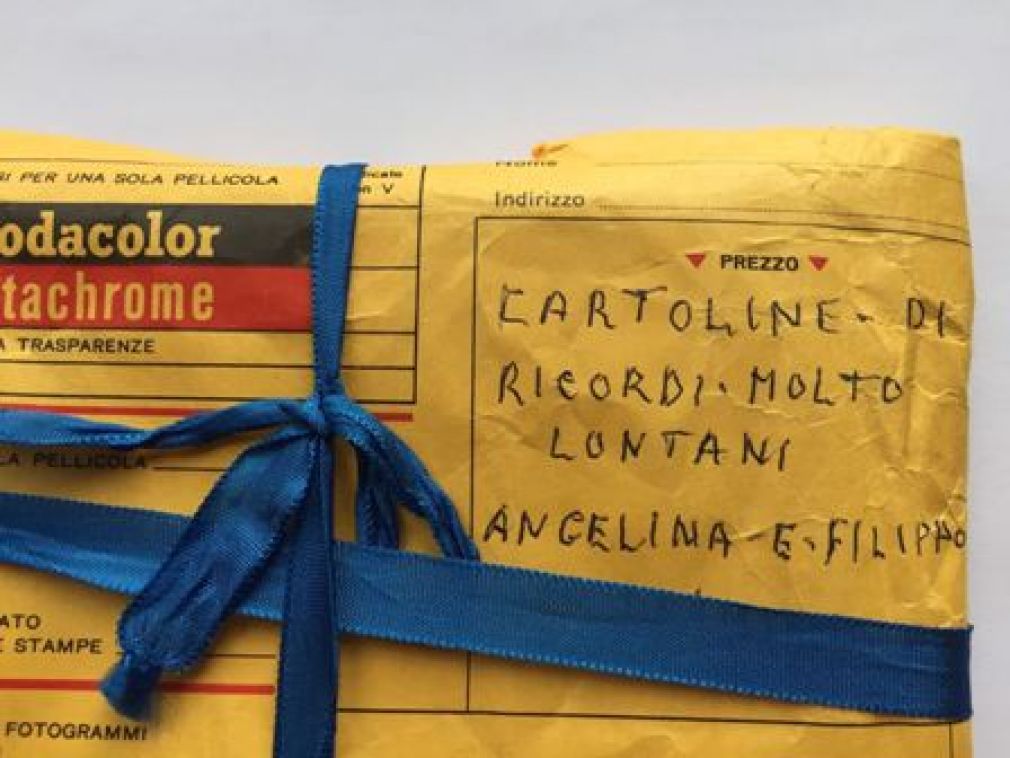 PER UNA SOLA PELLICOLA
odacolor
tachrome
A TRASPARENZE
LA PELLICOLA
ATO
E STAMPE
FOTOGRAMMI
Indirizzo
PREZZO
CARTOLINE - DI
RICORDI. MOLTO
LONTANI
ANGELINA E. FILIPPO